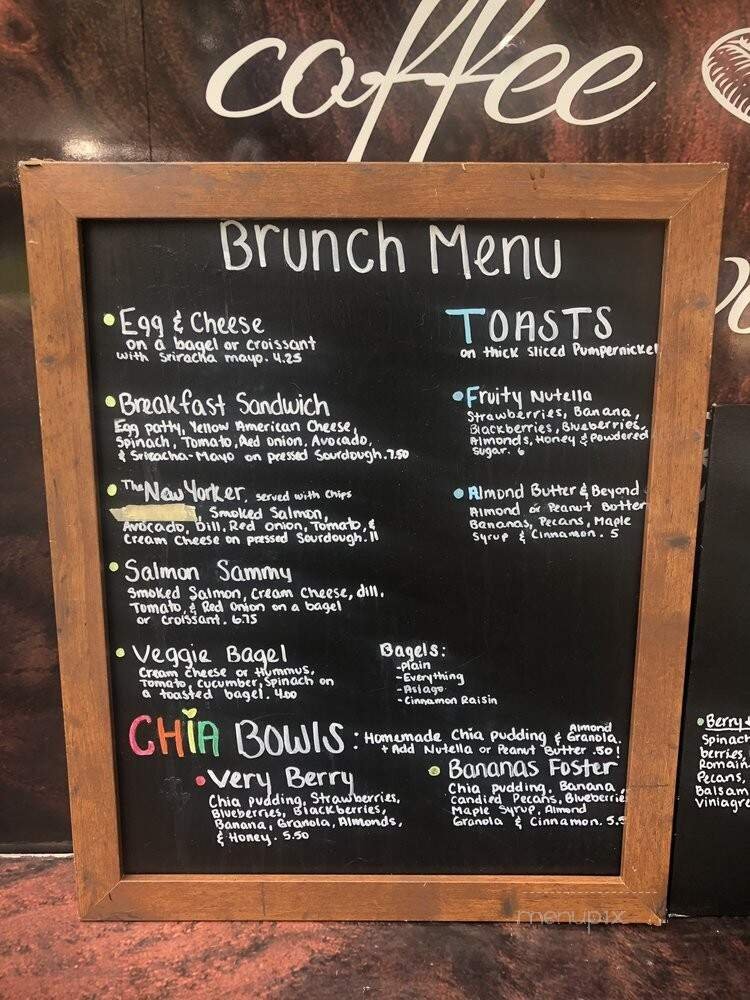 coffee
Brunch Menu
Egg & Cheese
on a bagel or croissant
with Sriracha mayo. 4.25
Breakfast Sandwich
Egg patty, Yellow American Cheese,
Spinach, Tomato, Red onion, Avocado,
& Sriracha-Mayo on pressed Sourdough. 7.50
The New Yorker, served with chips
Smoked Salmon,
Avocado, Dill, Red Onion, Tomato, &
Cream Cheese on pressed Sourdough. 11
Salmon Sammy
Smoked Salmon, Cream Cheese, dill,
Tomato, & Red Onion on a bagel
or Croissant. 6.75
Veggie Bagel
Cream cheese or Hummus,
Tomato, Cucumber, Spinach on
a toasted bagel. 4.00
TOASTS
on thick sliced Pumpernickel
Fruity Nutella
Strawberries, Banana,
Blackberries, Blueberries,
Almonds, Honey & Powdered
Sugar. 6
Almond Butter & Beyond
Almond or Peanut Butter
Bananas, Pecans, Maple
Syrup & Cinnamon. 5
Bagels:
-Plain
-Everything
-Asiago
-Cinnamon Raisin
CHiA BOWlS: Homemade Chia pudding & Almond Granola.
+ Add Nutella or Peanut Butter .50!
Very Berry
Chia pudding, Strawberries,
Blueberries, Blackberries,
Banana, Granola, Almonds,
& Honey. 5.50
Bananas Foster
Chia pudding, Banana,
Candied Pecans, Blueberries
Maple Syrup, Almond
Granola & Cinnamon. 5.5
Berry
Spinach
berries,
Romain
Pecans,
Balsam
Viniagre
menupix